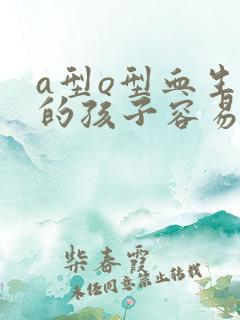 a型o型血生
的孩子容易
柴春霞
未经同意禁止转载